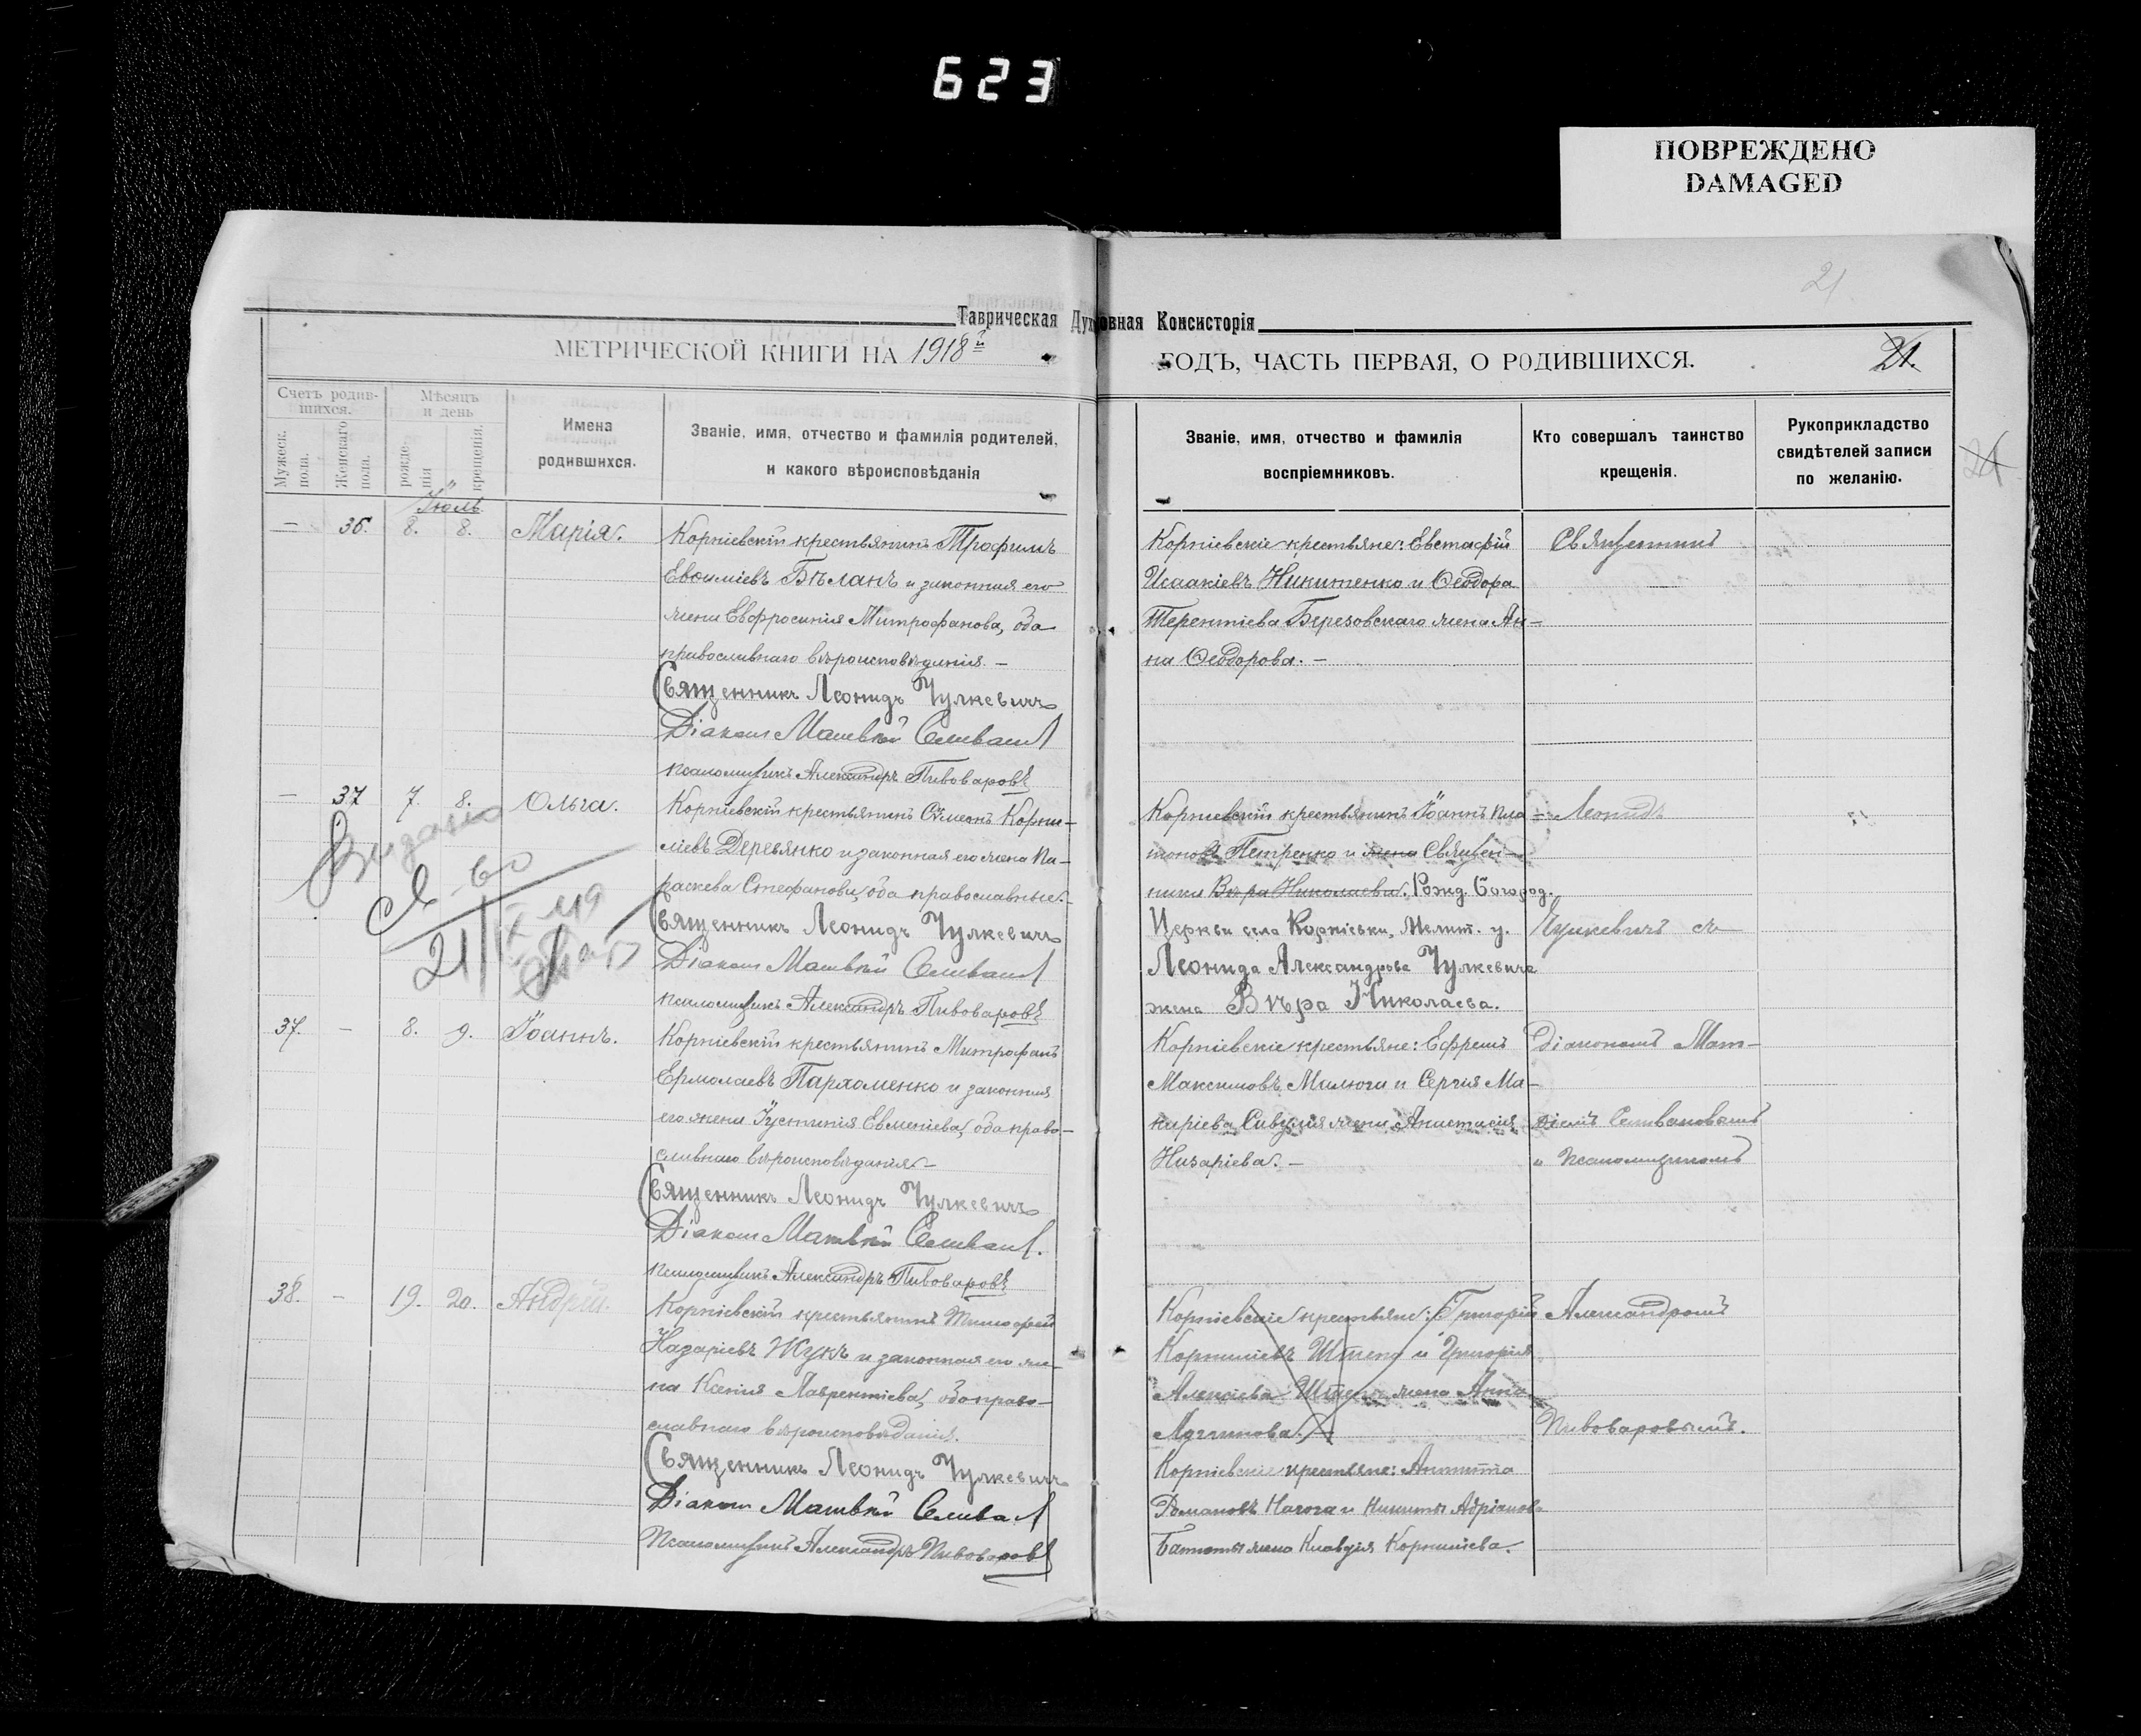 623
ПОВРЕЖДЕНО
DAMAGED
21
Таврическая Духовная Консисторія
МЕТРИЧЕСКОЙ КНИГИ НА 1918й
ГОДЪ, ЧАСТЬ ПЕРВАЯ, О РОДИВШИХСЯ.
21.
21
Счетъ родив-
шихся.
Мужеск. пола.
Женскаго пола.
Мѣсяцъ
и день
рожде-
нія
крещенія.
Имена
родившихся.
Званіе, имя, отчество и фамилія родителей,
и какого вѣроисповѣданія
Званіе, имя, отчество и фамилія
воспріемниковъ.
Кто совершалъ таинство
крещенія.
Рукоприкладство
свидѣтелей записи
по желанію.
Іюль
— 36. 8. 8. Марія.
Корніевскій крестьянинъ Трофимъ
Евѳиміевъ Бѣланъ и законная его
жена Евфросинія Митрофанова, оба
православнаго вѣроисповѣданія. —
Священникъ Леонидъ Чулкевичъ
Діаконъ Матвѣй Селиванов
псаломщикъ Александръ Пивоваровъ
Корніевскіе крестьяне: Евстафій
Исаакіевъ Никитенко и Ѳеодора
Терентіева Березовскаго жена Ан-
на Ѳеодорова. —
Священникъ
— 37 7. 8. Ольга.
Корніевскій крестьянинъ Сѵмеонъ Корни-
ліевъ Деревянко и законная его жена Па-
раскева Стефанова, оба православные. -
Священникъ Леонидъ Чулкевичъ
Діаконъ Матвѣй Селиванов
псаломщикъ Александръ Пивоваровъ
Выдано
св-во
21/IX 1919
Корніевскій крестьянинъ Іоаннъ Пла-
тоновъ Петренко и жена Священ-
ника Вѣра Николаева. Рожд. Богород.
Церкви села Корніевки, Мелит. у.
Леонида Александрова Чулкевича
жена Вѣра Николаева.
Леонидъ
Чулкевичъ съ
37. - 8. 9. Іоаннъ.
Корніевскій крестьянинъ Митрофанъ
Ермолаевъ Пархоменко и законная
его жена Іустинія Евменіева, оба право-
славнаго вѣроисповѣданія. —
Священникъ Леонидъ Чулкевичъ
Діаконъ Матвѣй Селиванов.
псаломщикъ Александръ Пивоваровъ
Корніевскіе крестьяне: Ефремъ
Максимовъ Малюга и Сергія Ма-
каріева Савуля жена Анастасія
Назаріева. —
Діакономъ Мат-
ѳіемъ Селивановымъ
и Псаломщикомъ
38. - 19. 20. Андрей.
Корніевскій крестьянинъ Тимоѳей
Назаріевъ Жукъ и законная его же-
на Ксенія Лаврентіева, оба право-
славнаго вѣроисповѣданія.
Священникъ Леонидъ Чулкевичъ
Діаконъ Матвѣй Селиванов
Псаломщикъ Александръ Пивоваровъ
Корніевскіе крестьяне: Григорій
Корниліевъ и Григорія
Алексіева жена Анна
Логгинова. —
Корніевскіе крестьяне:
Романовъ и Никиты Адріанова
жена Клавдія Корниліева.
Александромъ
Пивоваровымъ.